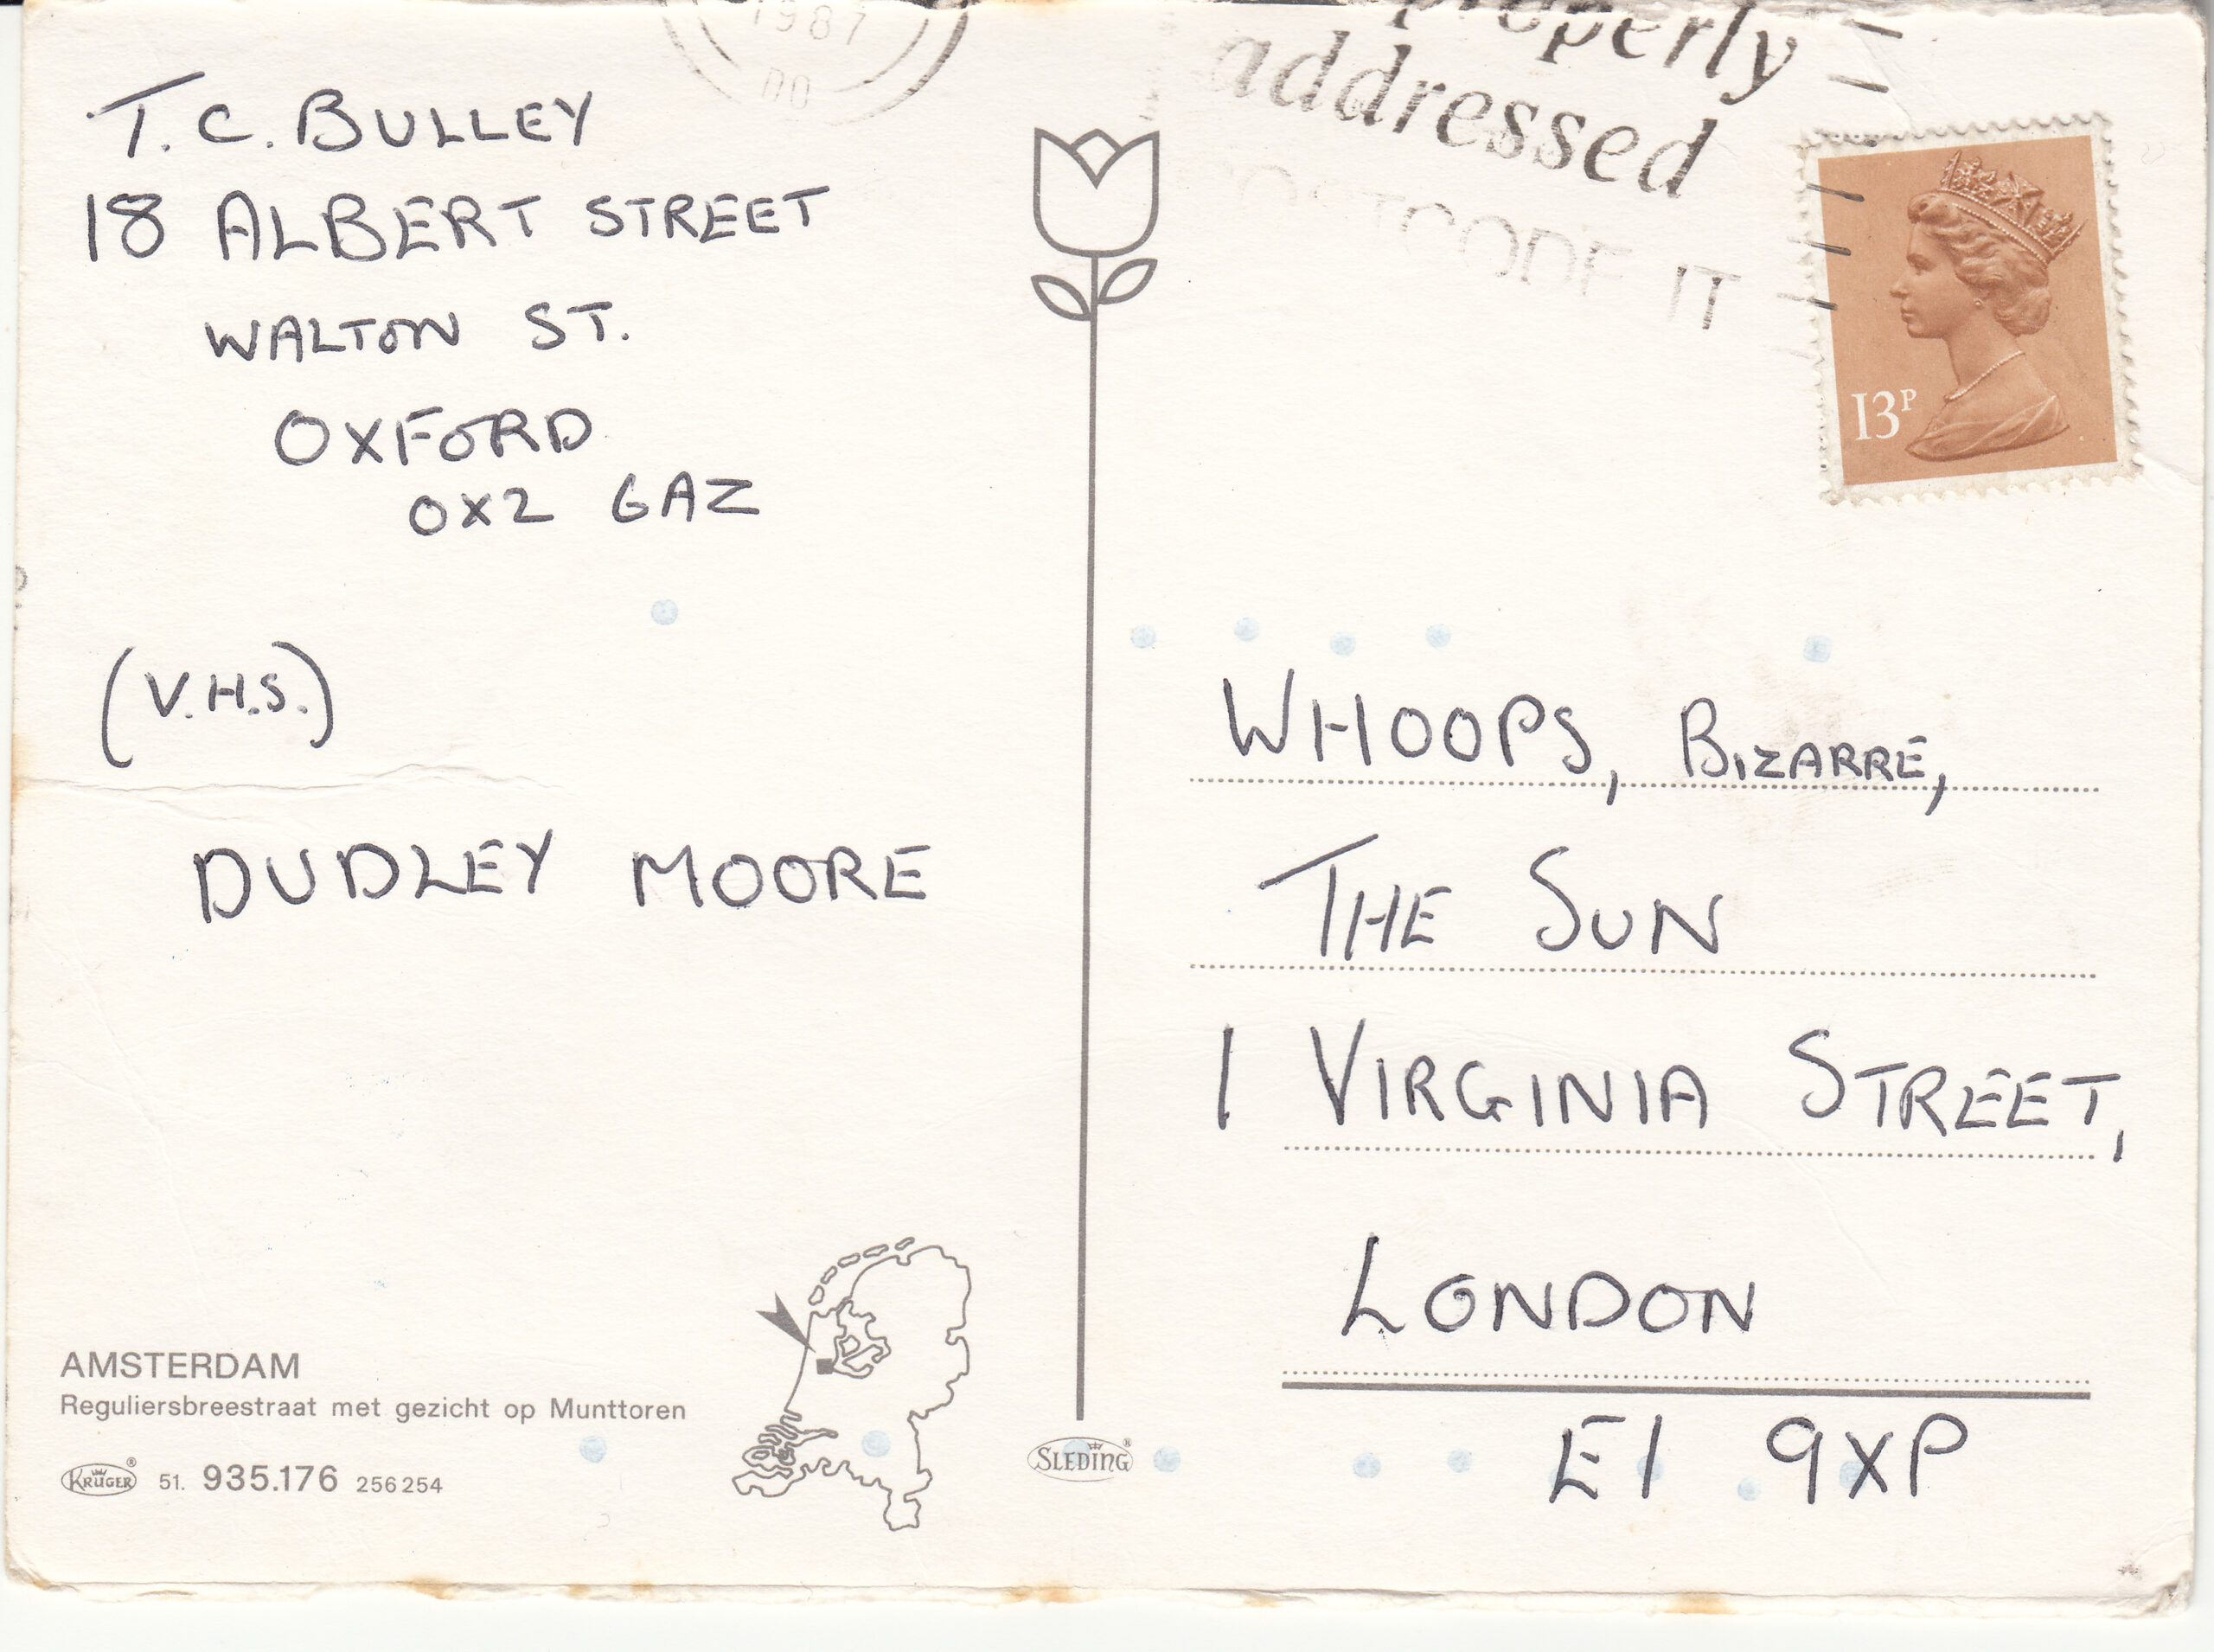 1987
T.C. BULLEY
18 ALBERT STREET
WALTON ST.
OXFORD
OX2 GAZ
(V.H.S.)
DUDLEY MOORE
AMSTERDAM
Reguliersbreestraat met gezicht op Munttoren
KRÜGER® 51. 935.176 256254
SLEDING®
properly
addressed
POSTCODE IT
13P
WHOOPS, BIZARRE,
THE SUN
1 VIRGINIA STREET,
LONDON
E1 9XP